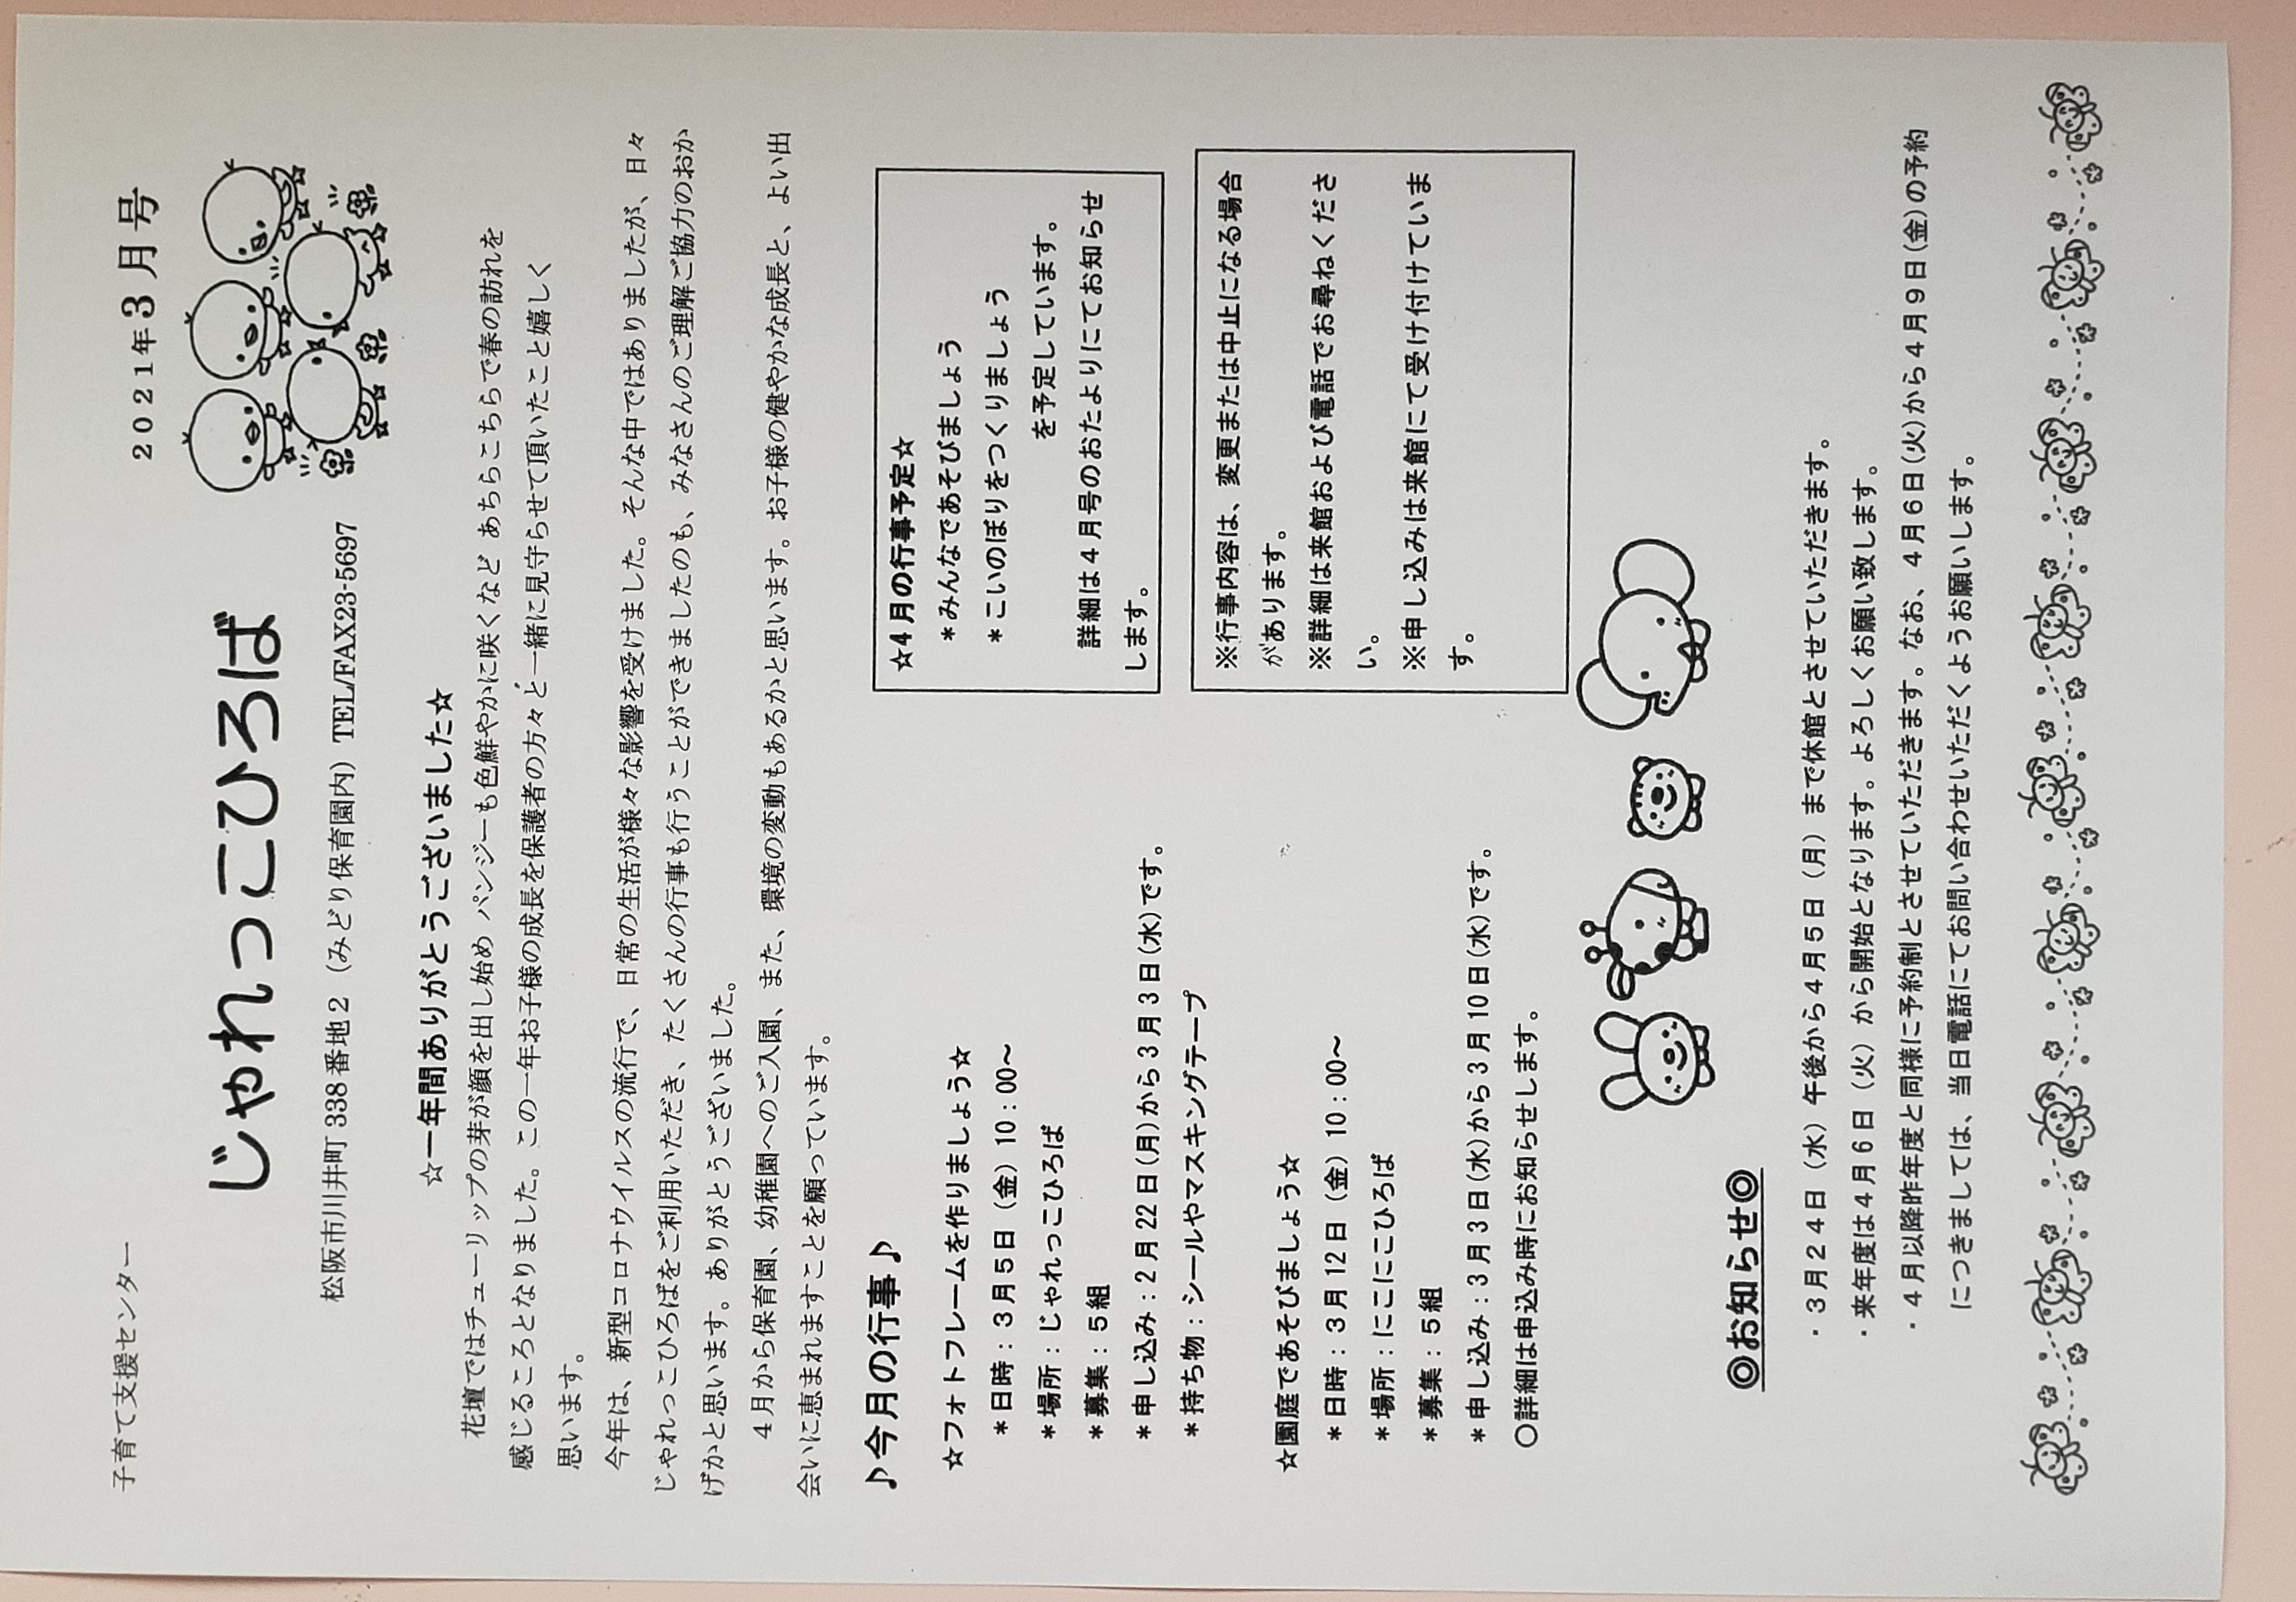 子育て支援センター
2021年3月号
じゃれっこひろば
松阪市川井町 338 番地2（みどり保育園内）TEL/FAX23-5697
☆一年間ありがとうございました☆
花壇ではチューリップの芽が顔を出し始め パンジーも色鮮やかに咲くなど あちらこちらで春の訪れを
感じるころとなりました。この一年お子様の成長を保護者の方々と一緒に見守らせて頂いたこと嬉しく
思います。
今年は、新型コロナウイルスの流行で、日常の生活が様々な影響を受けました。そんな中ではありましたが、日々
じゃれっこひろばをご利用いただき、たくさんの行事も行うことができましたのも、みなさんのご理解ご協力のおか
げかと思います。ありがとうございました。
4月から保育園、幼稚園へのご入園、また、環境の変動もあるかと思います。お子様の健やかな成長と、よい出
会いに恵まれますことを願っています。
♪今月の行事♪
☆フォトフレームを作りましょう☆
＊日時：3月5日（金）10：00〜
＊場所：じゃれっこひろば
＊募集：5組
＊申し込み：2月22日(月)から3月3日(水)です。
＊持ち物：シールやマスキングテープ
☆園庭であそびましょう☆
＊日時：3月12日（金）10：00〜
＊場所：にこにこひろば
＊募集：5組
＊申し込み：3月3日(水)から3月10日(水)です。
○詳細は申込み時にお知らせします。
☆4月の行事予定☆
＊みんなであそびましょう
＊こいのぼりをつくりましょう
を予定しています。
詳細は4月号のおたよりにてお知らせ
します。
※行事内容は、変更または中止になる場合
があります。
※詳細は来館および電話でお尋ねくださ
い。
※申し込みは来館にて受け付けていま
す。
◎お知らせ◎
・3月24日（水）午後から4月5日（月）まで休館とさせていただきます。
・来年度は4月6日（火）から開始となります。よろしくお願い致します。
・4月以降昨年度と同様に予約制とさせていただきます。なお、4月6日(火)から4月9日(金)の予約
につきましては、当日電話にてお問い合わせいただくようお願いします。